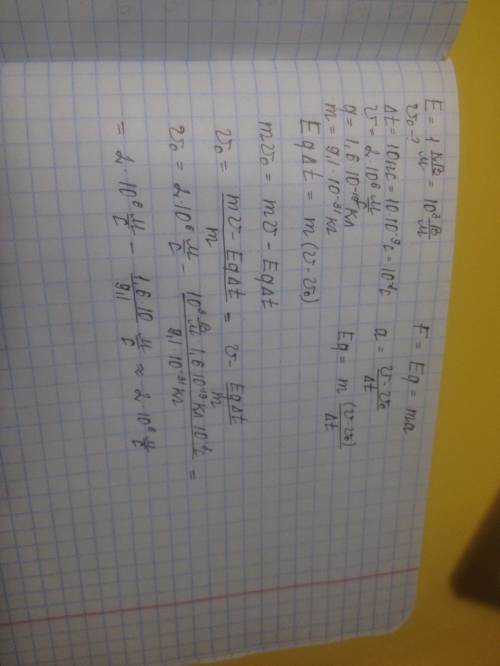 E = 1 кВ/м = 10³ В/м
v₀ - ?
Δt = 10нс = 10 10⁻⁹с = 10⁻⁸с
v = 2 10⁶ м/с
q = 1,6 10⁻¹⁹ Кл
m = 9,1 · 10⁻³¹ кг
F = Eq = ma
a = (v - v₀)/Δt
Eq = m (v - v₀)/Δt
EqΔt = m (v - v₀)
mv₀ = mv - EqΔt
v₀ = (mv - EqΔt)/m = v - EqΔt/m
v₀ = 2 · 10⁶ м/с - (10³ В/м 1,6 10⁻¹⁹ Кл 10⁻⁸с)/(9,1 10⁻³¹ кг) =
= 2 · 10⁶ м/с - (1,6 10)/9,1 м/с ≈ 2 · 10⁶ м/с